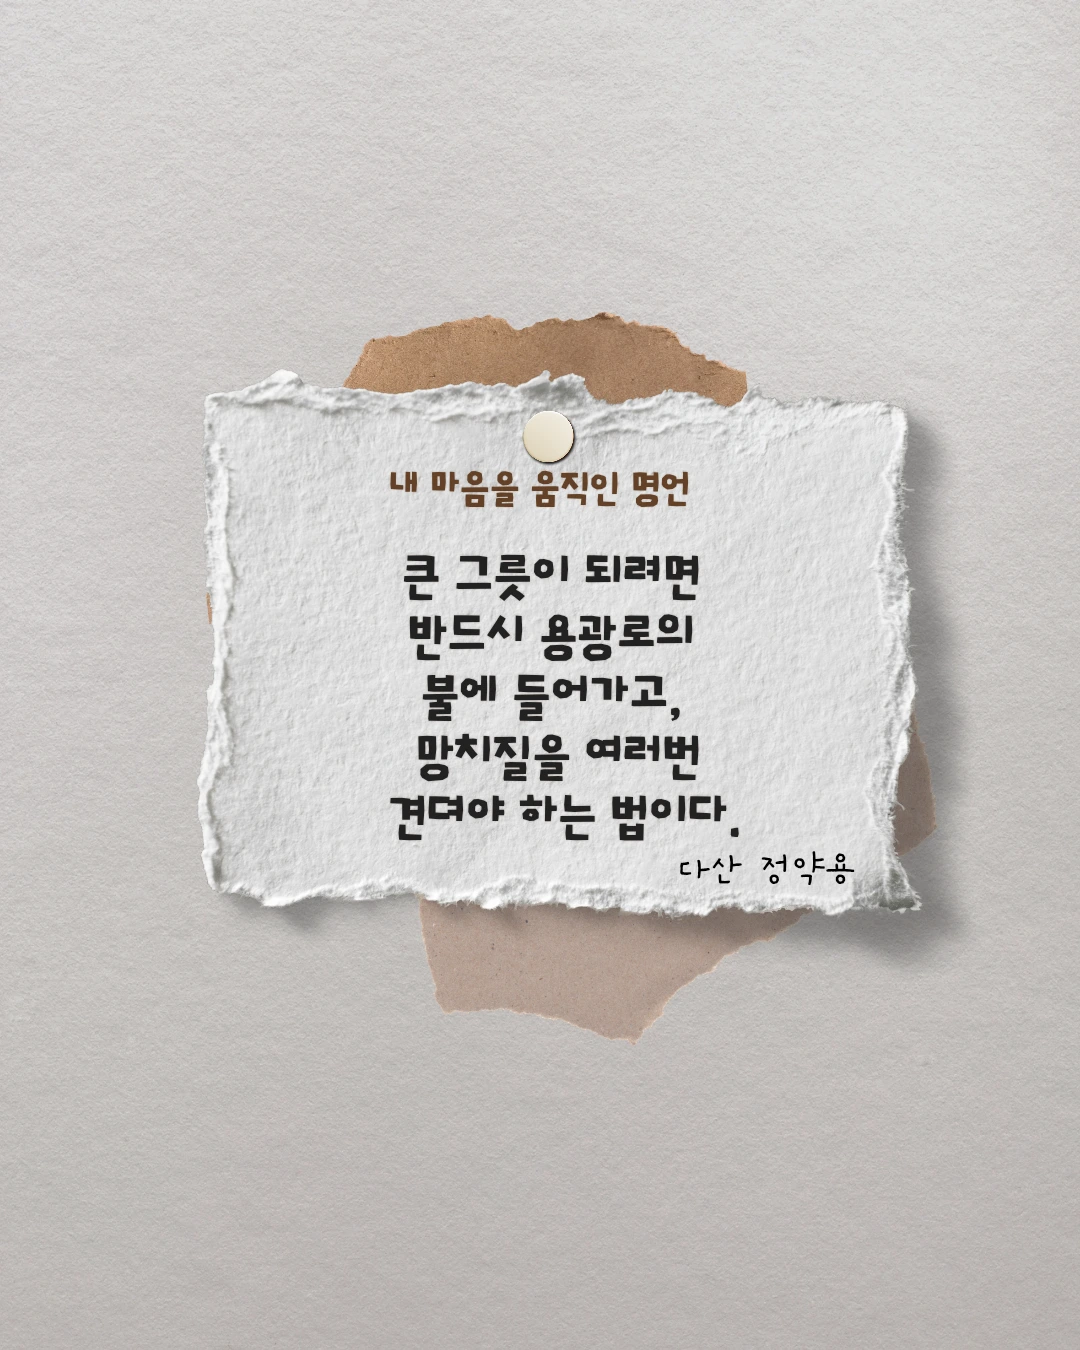 내 마음을 움직인 명언
큰 그릇이 되려면
반드시 용광로의
불에 들어가고,
망치질을 여러번
견뎌야 하는 법이다.
다산 정약용